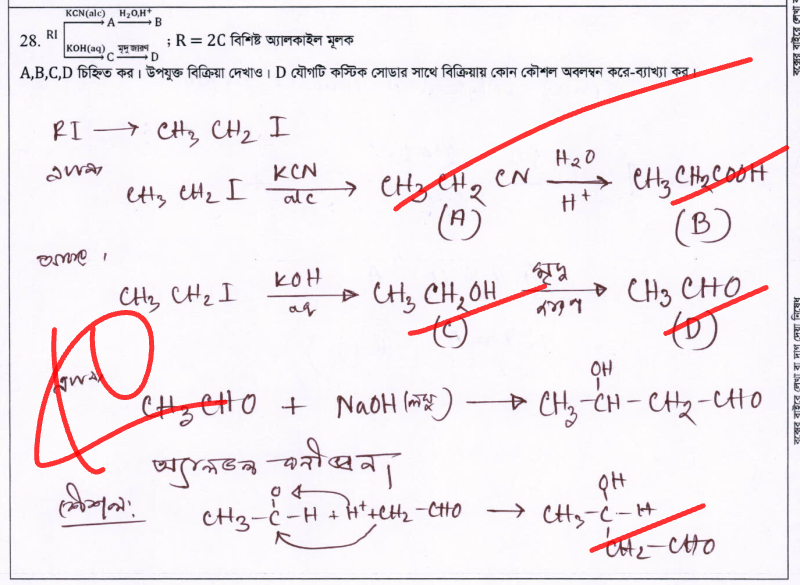 28. RI KCN(alc) → A H₂O,H⁺ → B
KOH(aq) → C মৃদু জারণ → D ; R = 2C বিশিষ্ট অ্যালকাইল মূলক
A,B,C,D চিহ্নিত কর। উপযুক্ত বিক্রিয়া দেখাও। D যৌগটি কস্টিক সোডার সাথে বিক্রিয়ায় কোন কৌশল অবলম্বন করে-ব্যাখ্যা কর।
RI → CH₃ CH₂ I
CH₃ CH₂ I KCN alc → CH₃ CH₂ CN H₂O H⁺ → CH₃ CH₂COOH
(A) (B)
CH₃ CH₂ I KOH aq → CH₃ CH₂OH মৃদু → CH₃ CHO
(C) (D)
10
CH₃ CHO + NaOH (লঘু) → CH₃ – CH – CH₂ – CHO
OH
অ্যালডল
কৌশল:
CH₃ – C – H + H⁺ + CH₂ – CHO → CH₃ – C – H
O OH
CH₂ – CHO